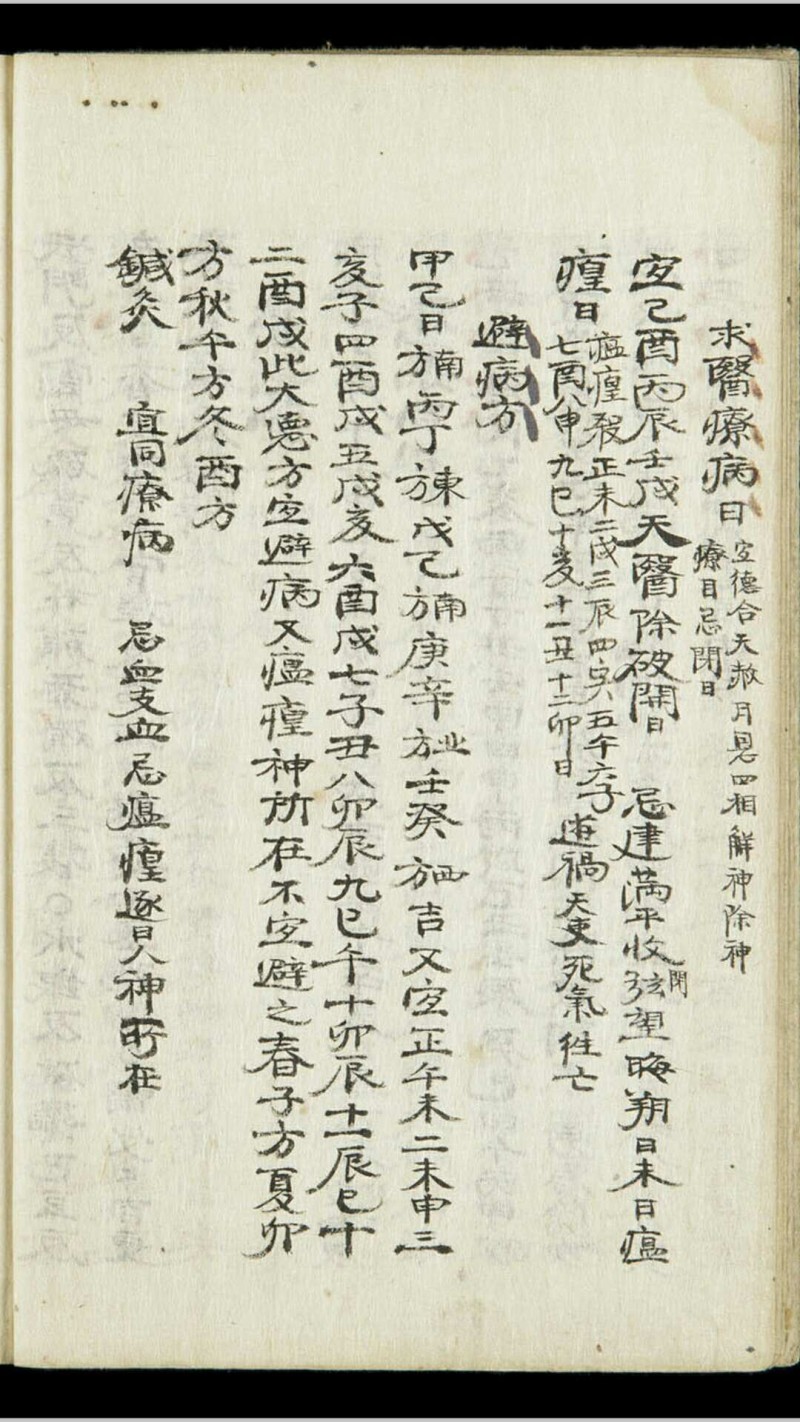 求醫療病日 宜德合天赦月恩四相解神除神
療目忌閉日
宜己酉丙辰壬戌天醫除破開日 忌建滿平收閉弦望晦朔日未日瘟
𤶊日 瘟𤶊殺正未二戌三辰四寅五午六子
七酉八申九巳十亥十一丑十二卯日 遊禍天吏死氣徃亡
避病方
甲乙日方南丙丁方東戊己方南庚辛方北壬癸方西吉又宜正午未二未申三
亥子四酉戌五戌亥六酉戌七子丑八卯辰九巳午十卯辰十一辰巳十
二酉戌此大德方宜避病又瘟𤶊神所在不宜避之春子方夏卯
方秋午方冬酉方
鍼灸 宜同療病 忌血支血忌瘟𤶊逐日人神所在